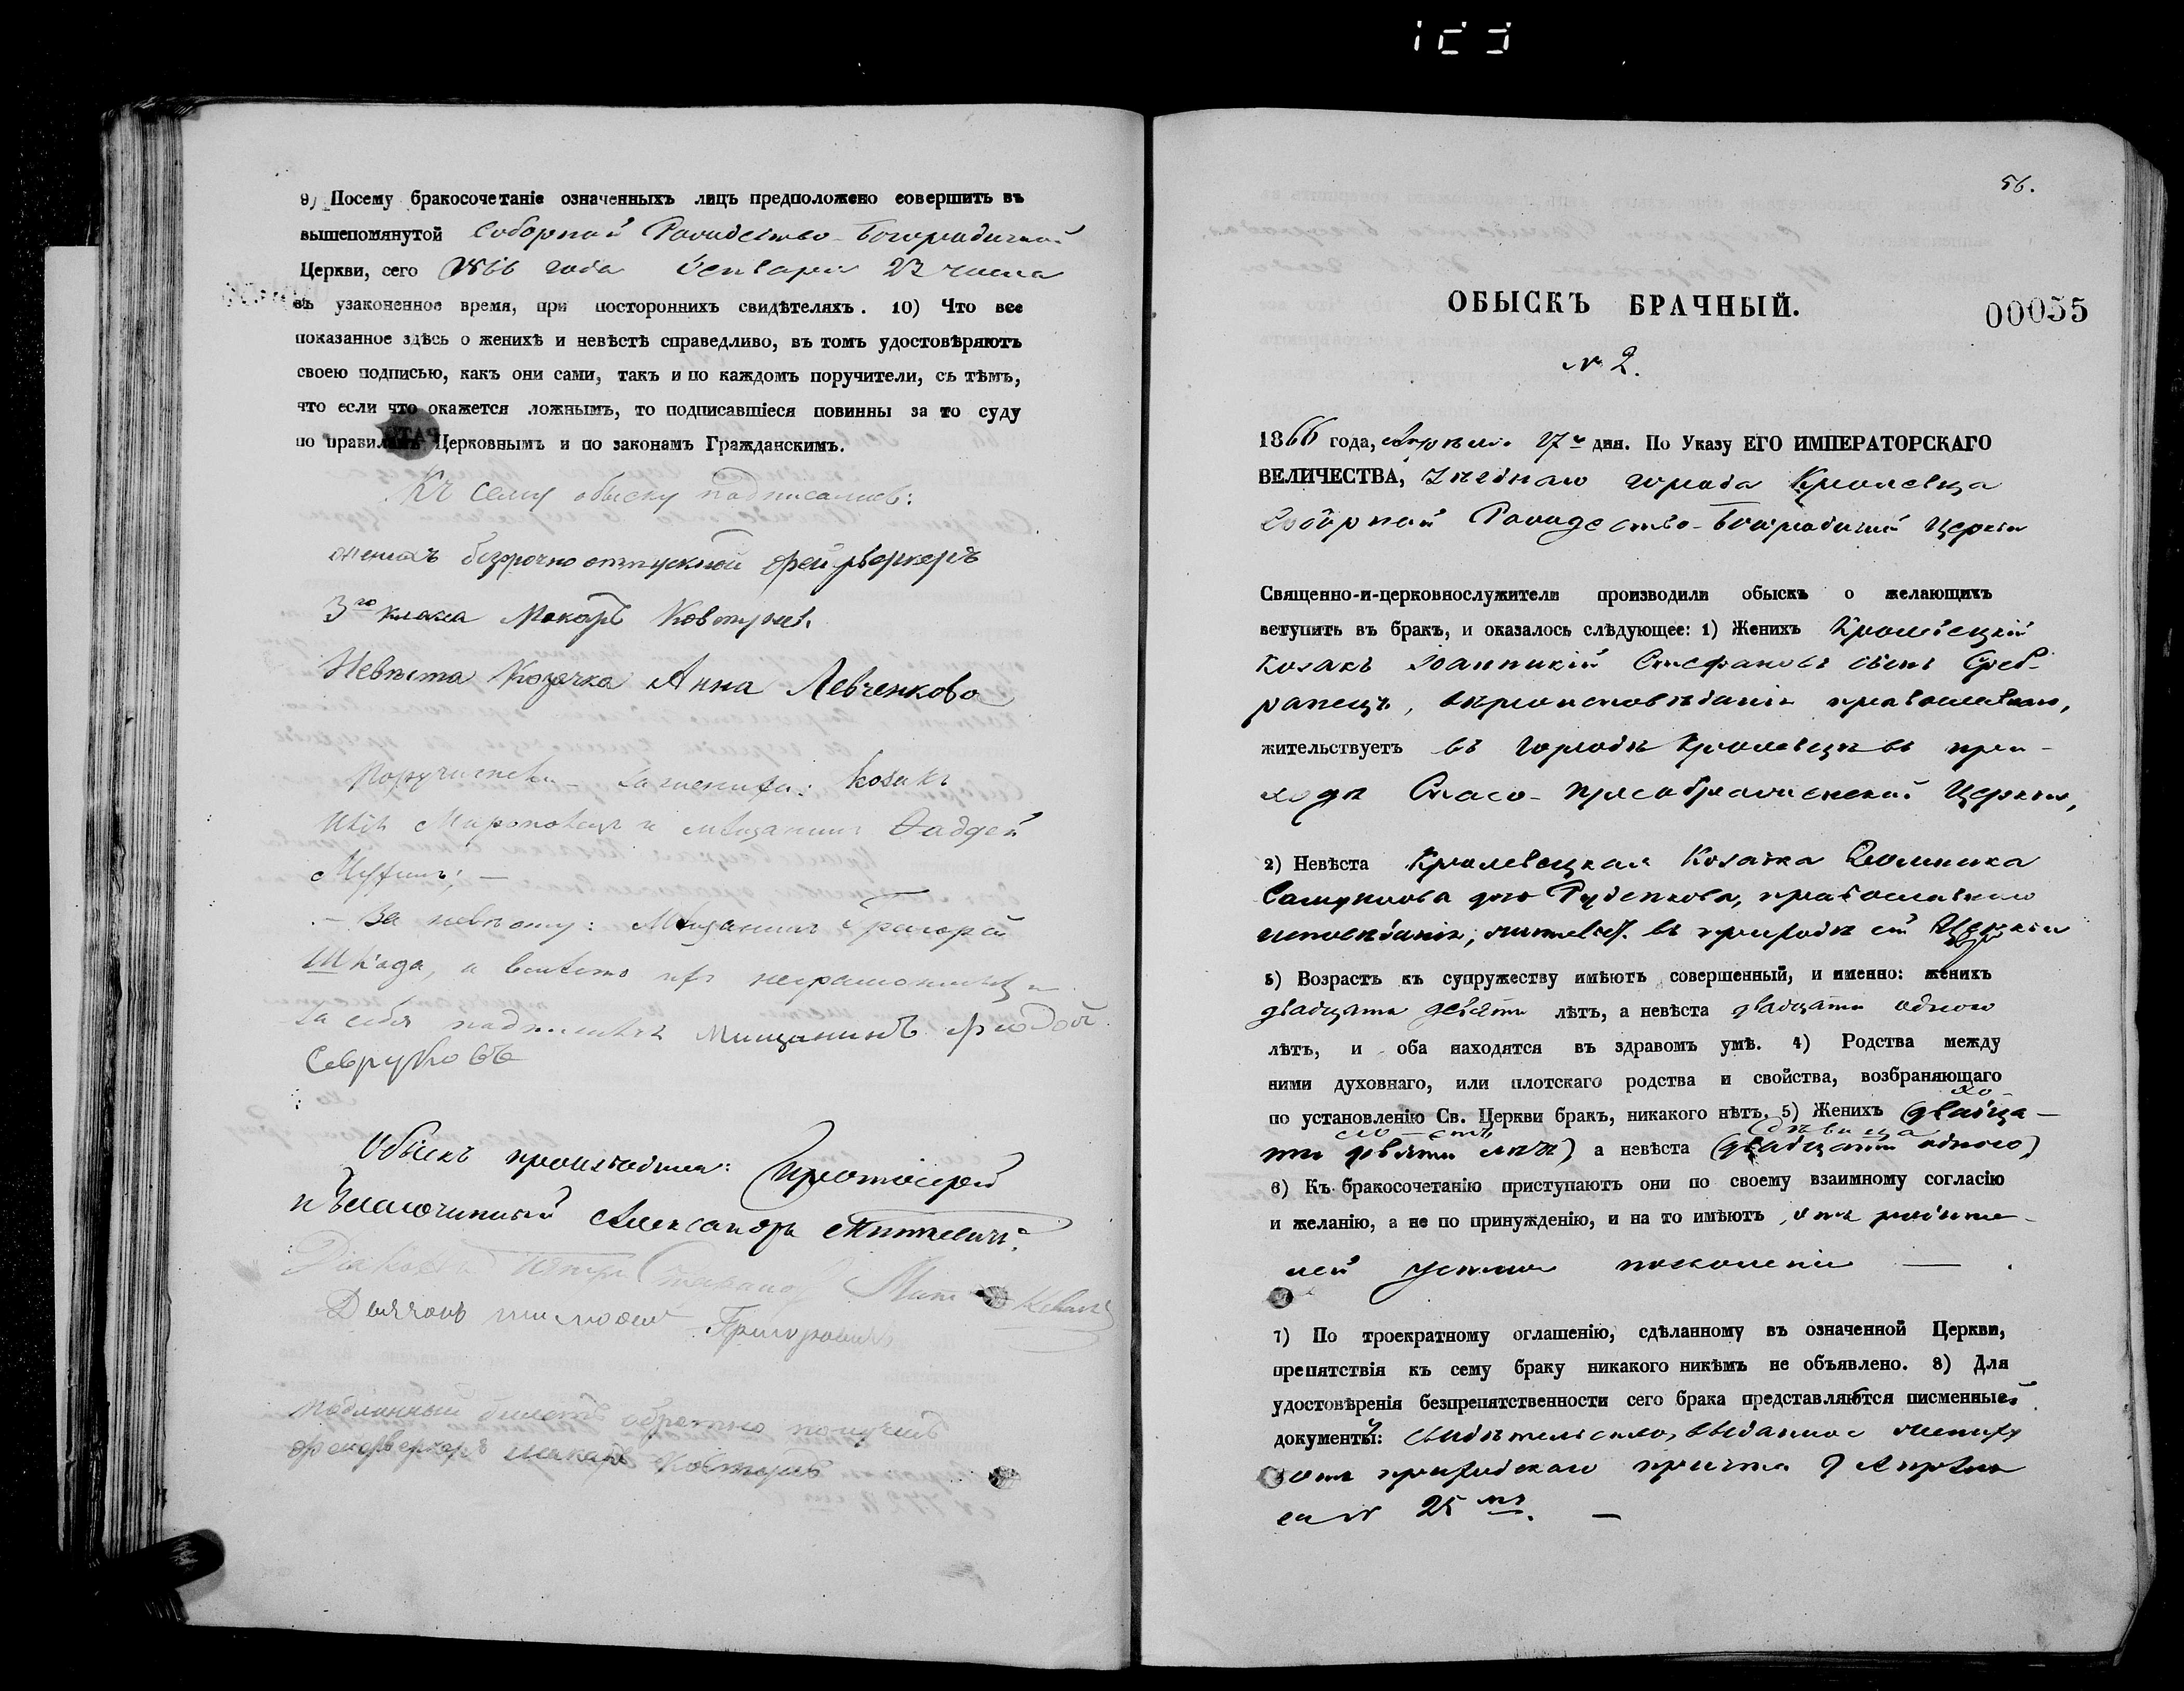 9) Посему бракосочетаніе означенныхъ лицъ предположено совершить въ
вышепомянутой Соборной Рождество-Богородичной
Церкви, сего 1866 года Генваря 23 числа
въ узаконенное время, при постороннихъ свидѣтеляхъ. 10) Что все
показанное здѣсь о женихѣ и невѣстѣ справедливо, въ томъ удостовѣряютъ
своею подписью, какъ они сами, такъ и по каждомъ поручители, съ тѣмъ,
что если что окажется ложнымъ, то подписавшіеся повинны за то суду
по правиламъ Церковнымъ и по законамъ Гражданскимъ.
Къ сему обыску подписались:
женихъ безсрочноотпускной фейрверкеръ
3го класа Макаръ Ковтунъ
Невѣста Козачка Анна Левченкова
Поручители за жениха: козакъ
Мироновецъ и мѣщанинъ Фаддей
Мухинъ; —
— За невѣсту: Мѣщанинъ Григорій
Шкода, а вмѣсто ихъ неграмотныхъ и
за себя подписался Мищанинъ Фіодоръ
Севрюковъ
Обыскъ производили: Протоіерей
и благочинный Александръ Миткевичъ.
Діаконъ Петръ Стефановъ Миткевичъ
Дьячокъ Тимофей Григоровичъ
подлинный билетъ обратно получилъ
фейерверкеръ Макаръ Ковтунъ
56.
ОБЫСКЪ БРАЧНЫЙ.
00055
№ 2.
1866 года, Апрѣля 17 дня. По Указу ЕГО ИМПЕРАТОРСКАГО
ВЕЛИЧЕСТВА, уѣзднаго города Кролевца
Соборной Рождество-Богородичной Церкви
Священно-и-церковнослужители производили обыскъ о желающихъ
вступить въ бракъ, и оказалось слѣдующее: 1) Женихъ Кролевецкій
Козакъ Іоанникій Стефановъ сынъ Среб-
ранецъ, вѣроисповѣданія православнаго,
жительствуетъ въ городѣ Кролевцѣ въ при-
ходѣ Спасо-Преображенской Церкви,
2) Невѣста Кролевецкая Козачка Домникa
Самуилова дочь Руденкова, православнаго
исповѣданія, жительст. въ приходѣ сей Церкви
3) Возрастъ къ супружеству имѣютъ совершенный, и именно: женихъ
двадцати девяти лѣтъ, а невѣста двадцати одного
лѣтъ, и оба находятся въ здравомъ умѣ. 4) Родства между
ними духовнаго, или плотскаго родства и свойства, возбраняющаго
хо-
по установленію Св. Церкви бракъ, никакого нѣтъ. 5) Женихъ (двадца-
дѣвица
ти девяти лѣтъ) а невѣста (двадцати одного)
6) Къ бракосочетанію приступаютъ они по своему взаимному согласію
и желанію, а не по принужденію, и на то имѣютъ отъ родите-
лей устное позволеніе —
7) По троекратному оглашенію, сдѣланному въ означенной Церкви,
препятствія къ сему браку никакого никѣмъ не объявлено. 8) Для
удостовѣренія безпрепятственности сего брака представляются писменные
документы: свидѣтельство, выданное жениху
отъ приходскаго причта 9 Апрѣля
за № 25мъ. —